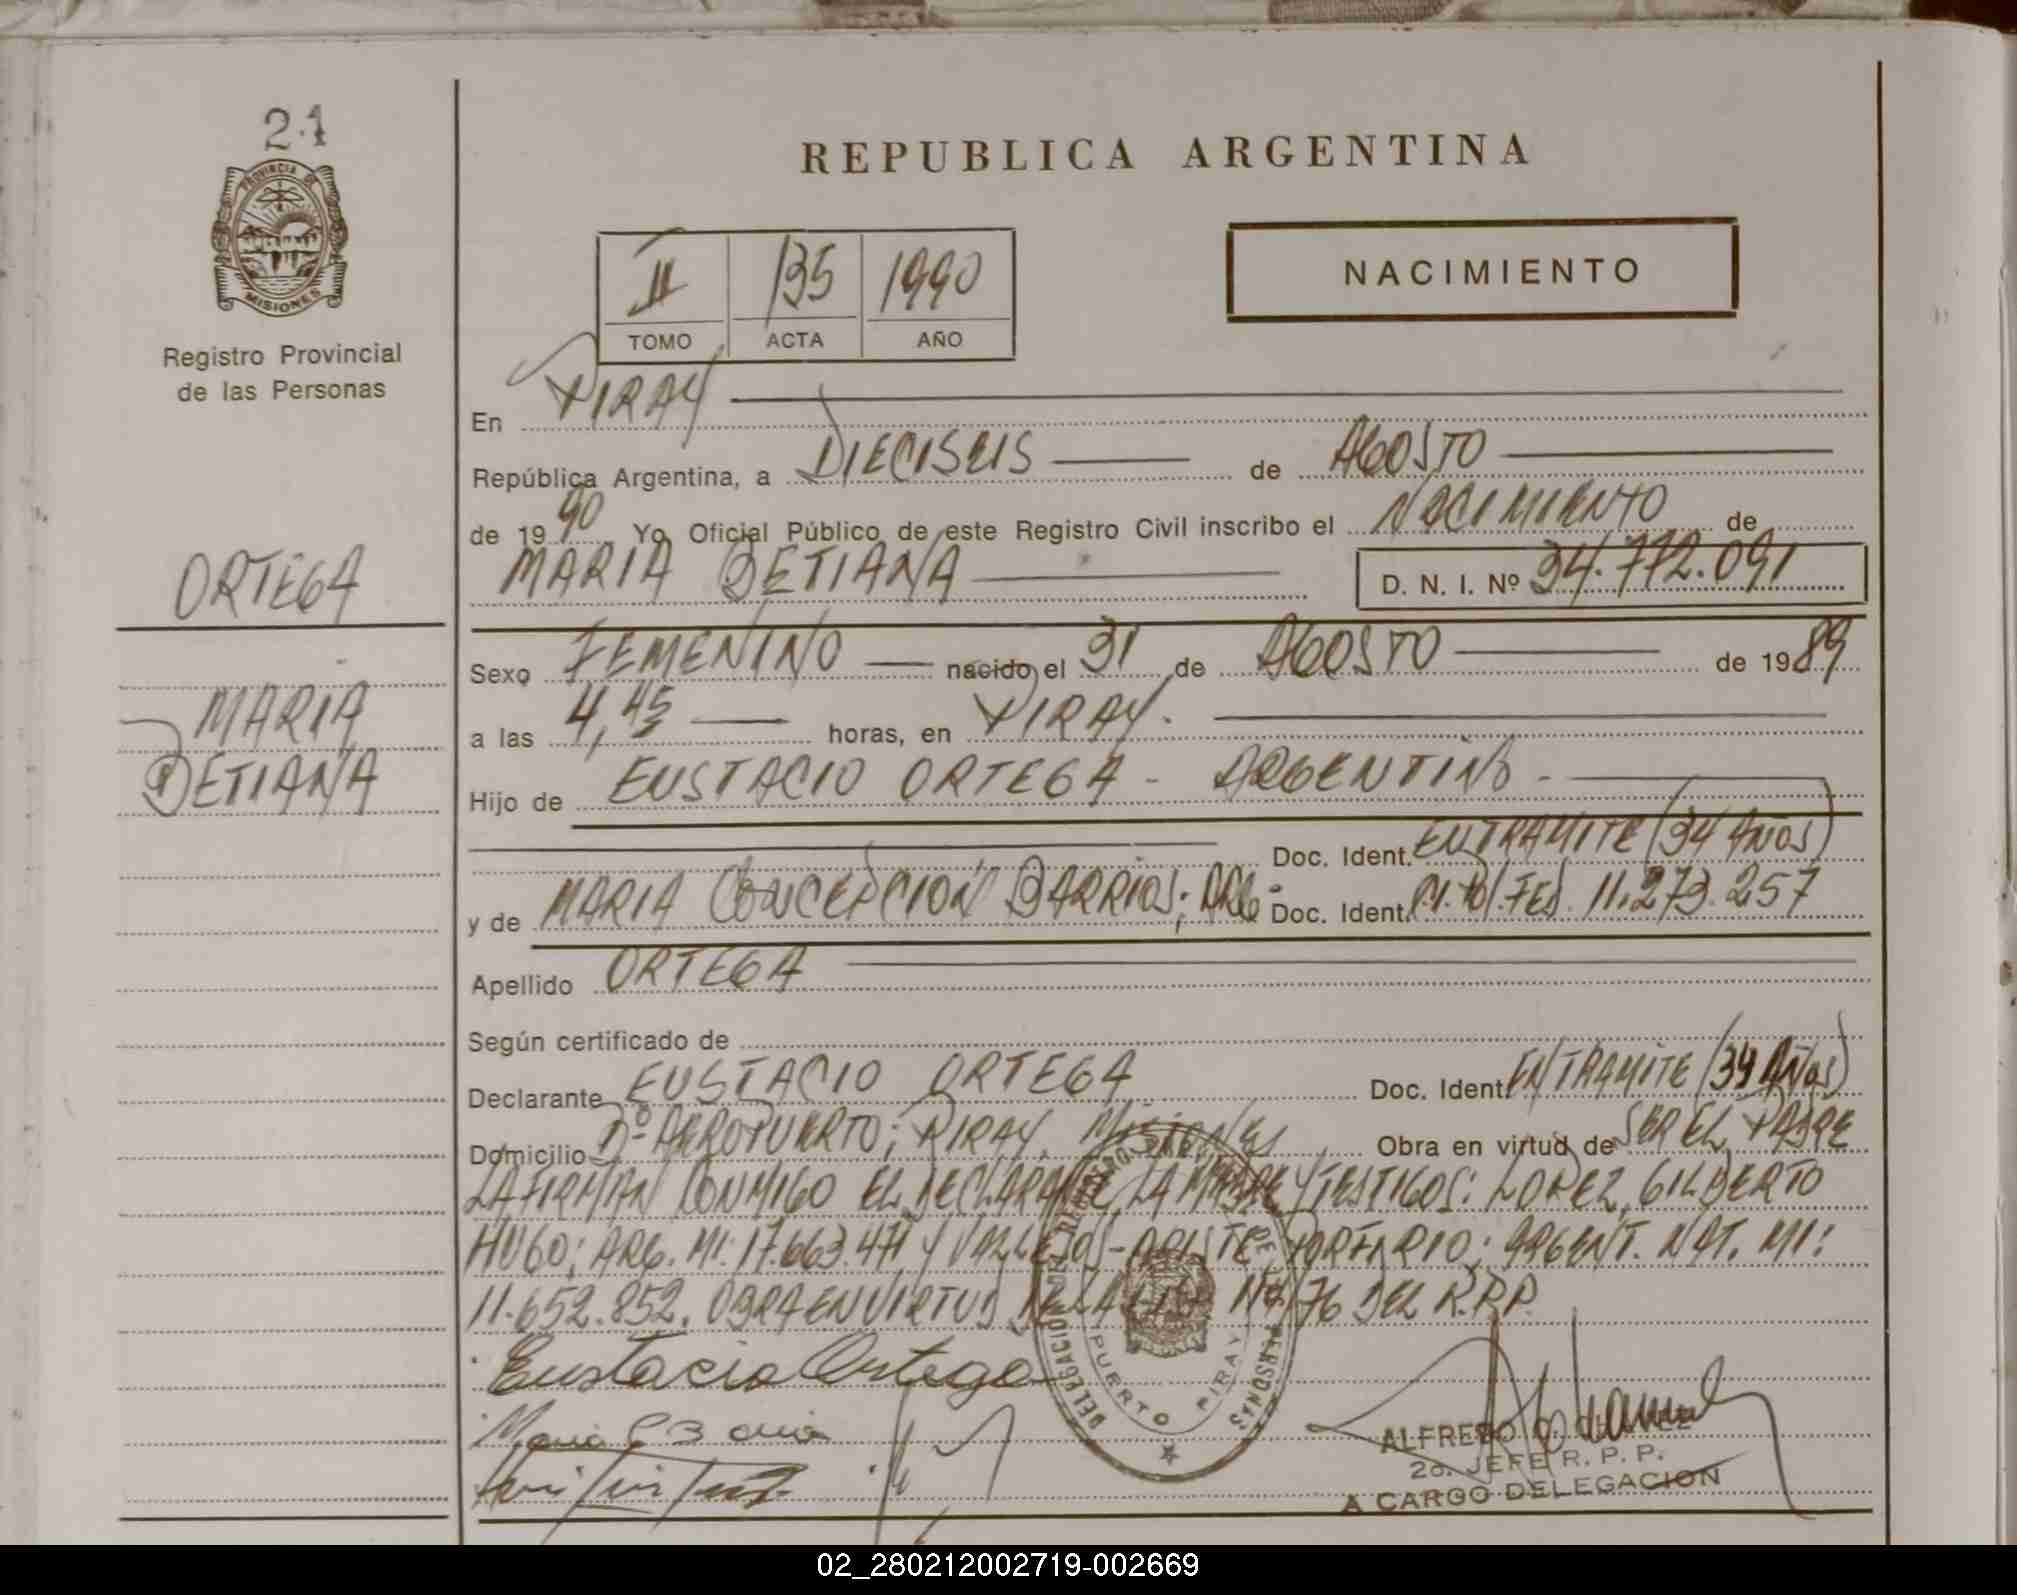 21
PROVINCIA DE
MISIONES
Registro Provincial
de las Personas
ORTEGA
MARIA
BETIANA
REPUBLICA ARGENTINA
II 135 1990
TOMO ACTA AÑO
NACIMIENTO
En PIRAY
República Argentina, a DIECISEIS de AGOSTO
de 1990 Yo, Oficial Público de este Registro Civil inscribo el NACIMIENTO de
MARIA BETIANA D. N. I. Nº 34.772.091
Sexo FEMENINO nacido el 31 de AGOSTO de 1989
a las 4,45 horas, en PIRAY.
Hijo de EUSTACIO ORTEGA - ARGENTINO -
Doc. Ident. EN TRAMITE (34 AÑOS)
y de MARIA CONCEPCION BARRIOS; ARG. Doc. Ident. C.I. Pol. FED. 11.273.257
Apellido ORTEGA
Según certificado de
Declarante EUSTACIO ORTEGA Doc. Ident. EN TRAMITE (34 AÑOS)
Domicilio Bº AEROPUERTO; PIRAY, Misiones Obra en virtud de SER EL PADRE
LA FIRMAN CONMIGO EL DECLARANTE, LA MADRE Y TESTIGOS: LOPEZ, GILBERTO
HUGO; ARG. MI: 17.663.471 Y VALLEJOS PORFIRIO; ARGENT. NAT. MI:
11.652.852. OBRA EN VIRTUD DE LA 76 DEL R.P.P.
Eustacio Ortega
Maria C B
DELEGACION REGISTRO DE LAS PERSONAS
PUERTO PIRAY
ALFREDO
2o. JEFE R. P. P.
A CARGO DELEGACION
02_280212002719-002669